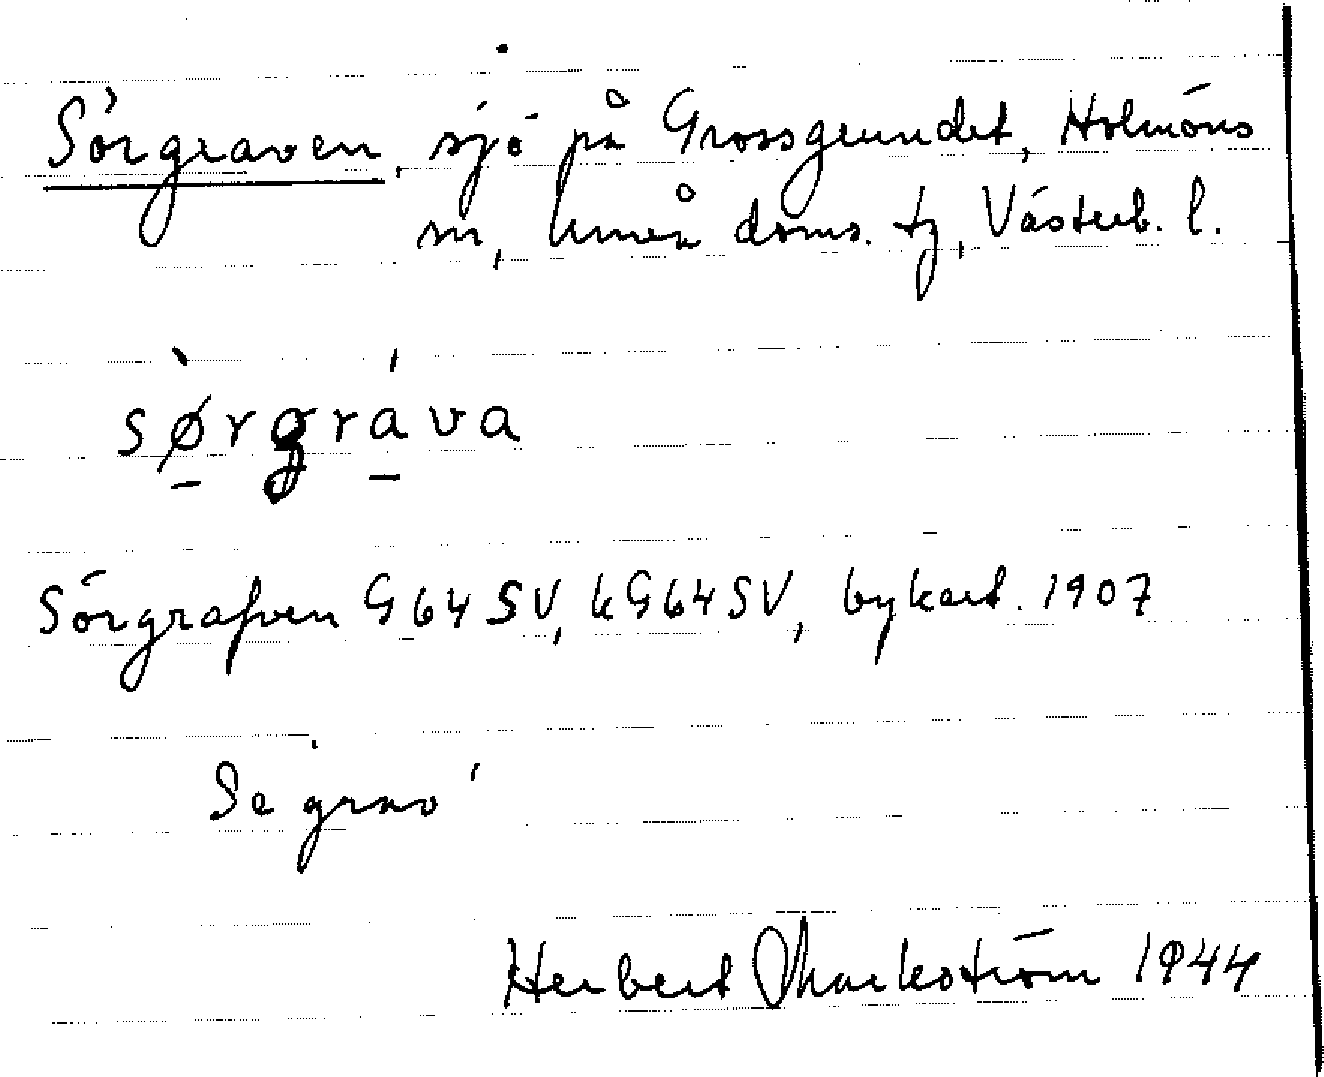 Sörgraven, sjö på Grossgrundet, Holmöns
sn, Umeå doms. tg, Västerb. l.
sø̀rgráva
Sörgrafven G64SV, kG64SV, bykart. 1907
Se grav
Herbert Markström 1944